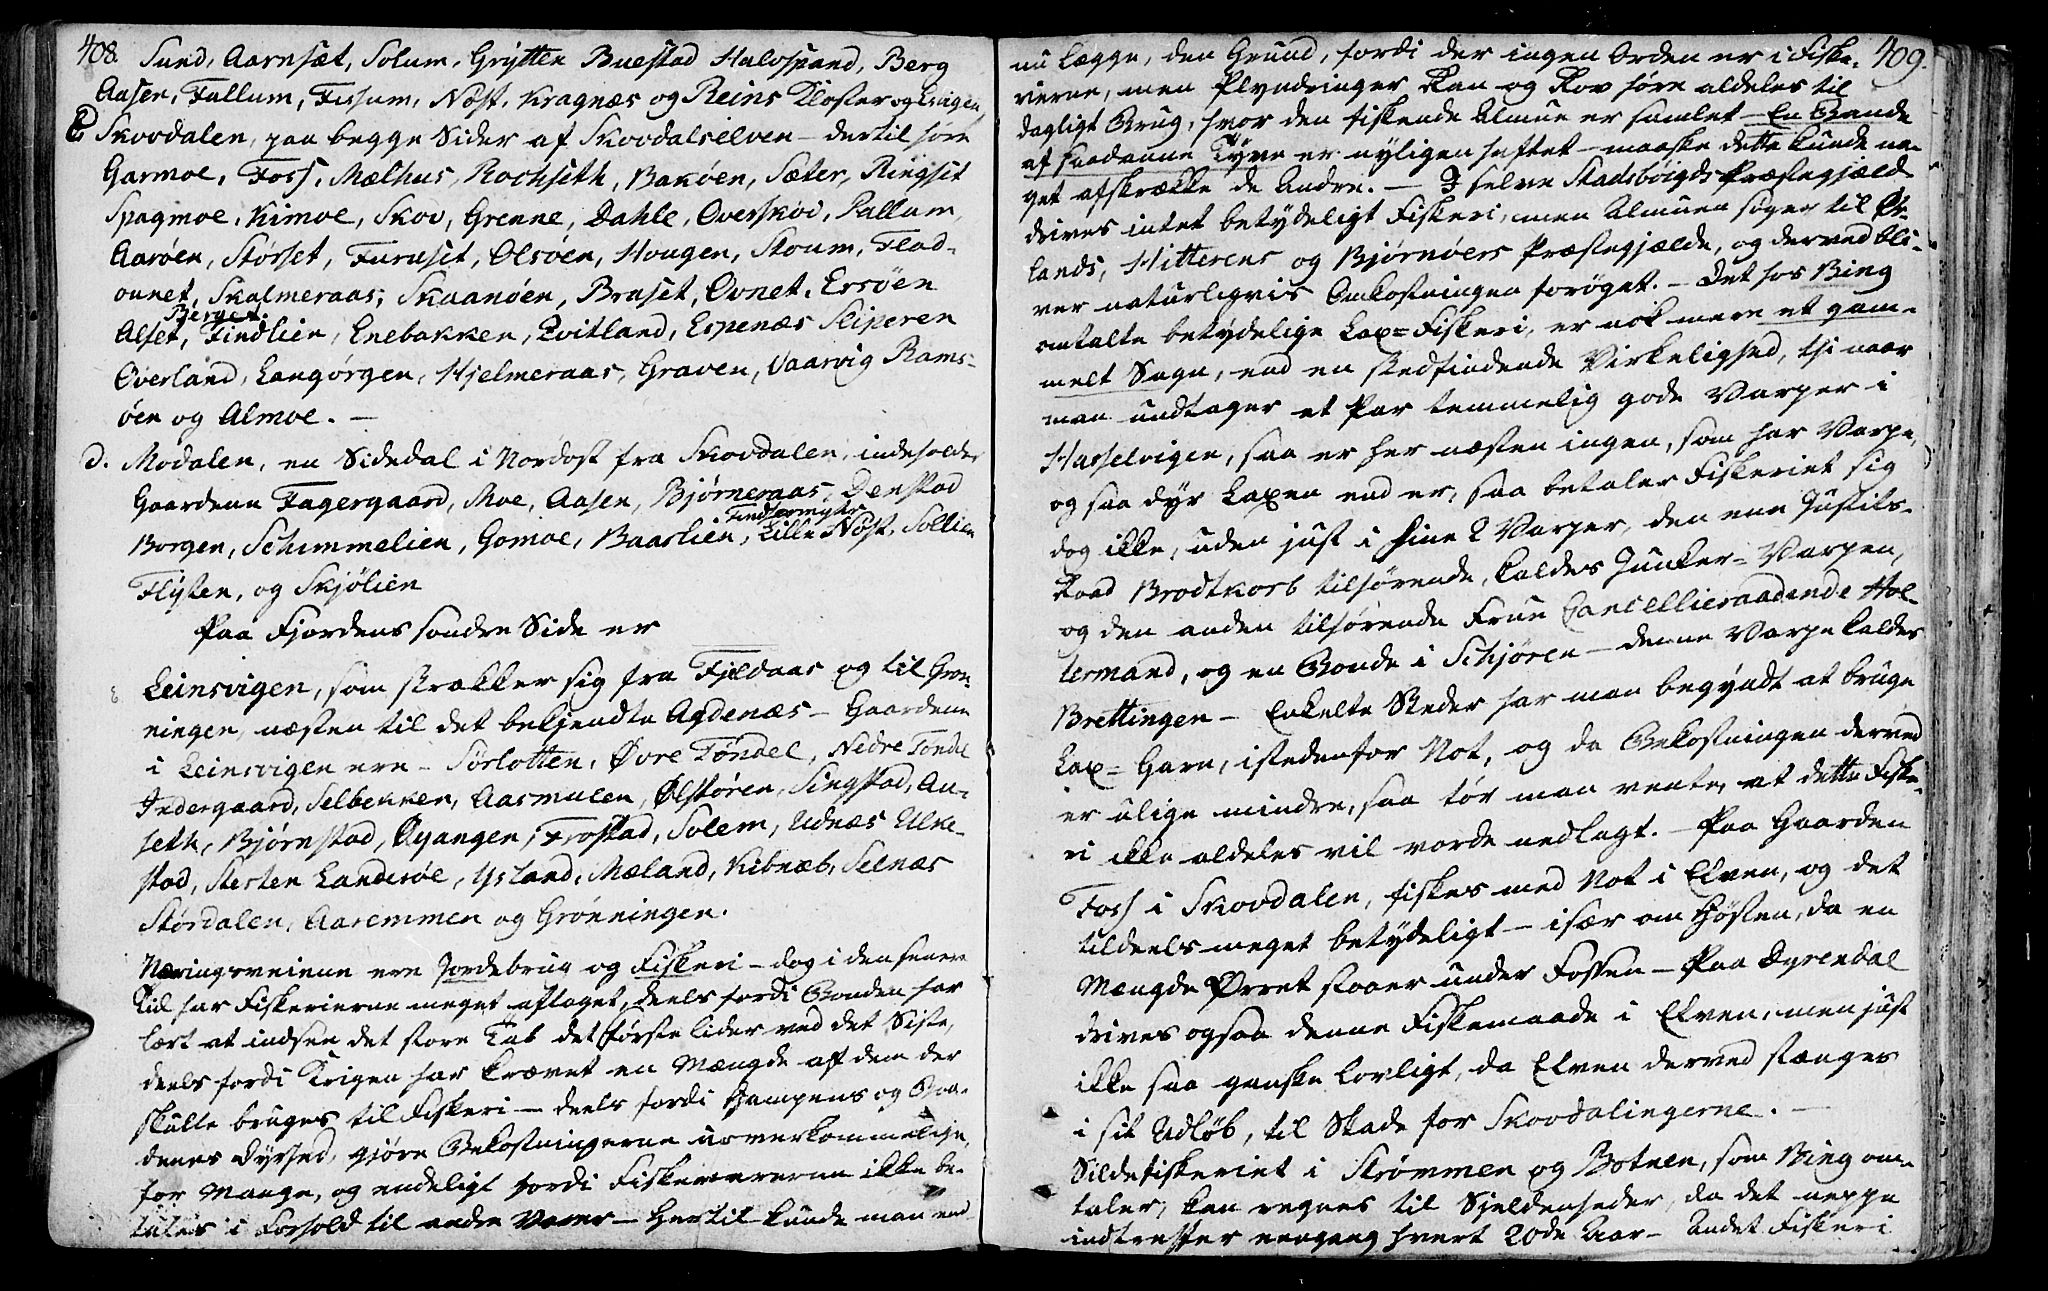 408. Sund, Aarnsæt, Solum, Grÿtten Buestad Halvspand, Berg
Aasen, Fallum, Fissum, Nöst, Kragnæs og Reins Kloster og Esvigen
Skovdalen, paa begge Sider af Skovdalselven – dertil höre
Garmoe, Foss, Mælhus, Rochseth, Bakøen, Sæter, Ringset
Spagmoe, Kimoe, Skov, Grenne, Dahle, Overskov, Pallum,
Aarøen, Störset, Furuset, Olsøen, Hougen, Skoum, Flad-
ounet, Skalmeraas, Skaanöen, Braset, Ovnet, Ersöen
Berget.
Alset, Findlien, Enebakken, Qvitland, Espenæs Sliperen
Överland, Langørgen, Hjelmeraas, Graven, Vaarvig Rams-
öen og Almoe. –
d. Modalen, en Sidedal i Nordost fra Skovdalen, indeholder
Gaardene Fagergaard, Moe, Aasen, Bjørneraas, Denstad
Findlermyhr
Borgen, Schimmelien, Gomoe, Baarlien, Lille Nøst, Sollien
Flÿten, og Skjølien
Paa Fjordens søndre Side er
Leinsvigen, som strækker sig fra Fjeldaas og til Grøn-
ningen, næsten til det bekjendte Agdenæs – Gaardene
i Leinsvigen ere – Sörlotten, Øvre Tøndel, Nedre Tøndel
Indergaard, Selbekken, Aasmulen, Ølstören, Singstad, An-
seth, Bjørnstad, Øyangen, Frostad, Solem, Udnæs Ulke-
stad, Stersten Landesöe, Ysland, Mæland, Kibnæb, Selnæs
Størdalen, Aaremmen og Grønningen.
Næringsveiene ere Jordebrug og Fiskeri – dog i den senere
Tid har Fiskerierne meget aftaget, deels fordi Bonden har
lært at indsee det store Tab det første lider ved det Siste,
deels fordi Krigen har krævet en Mængde af dem der
skulle bruges til Fiskeri – deels fordi Hampens og Baa-
denes Dyrhed, gjøre Bekostningerne uoverkommelige
for Mange, og endeligt fordi Fiskevarerne ikke be-
tales i Forhold til andre Varer – Hertil kunde man end-
409.
nu lægge, den Grund, fordi der ingen Orden er i Fiske-
rierne, men Plyndringer Ran og Rov høre aldeles til
dagligt Brug, hvor den fiskende Almue er samlet – En Bande
af saadanne Tyve er nyligen heftet – maaske dette kunde no-
get afskrække de Andre. – I selve Stadsböigds Præstegjæld
drives intet betydeligt Fiskeri, men Almuen søger til Ør-
lands, Hitterens og Bjørnøers Præstegjælde, og derved bli-
ver naturligvis Omkostningen forøget. – Det hos Bing
omtalte betydelige Lax-Fiskeri, er nok mere et gam-
melt Sagn, end en stedfindende Virkelighed, thi naar
man undtager et Par temmelig gode Varper i
Hasselvigen, saa er her næsten ingen, som har Varpe,
og saa dyr Laxen end er, saa betaler Fiskeriet sig
dog ikke, uden just i hine 2 Varper, den ene Justits-
Raad Brodtkorb tilhørende, kaldes Junker-Varpen,
og den anden tilhørende Frue Cancellieraadinde Hol-
termand, og en Bonde i Schjøren – denne Varpe kaldes
Brettingen – Enkelte Steder har man begyndt at bruge
Lax-Garn, istedenfor Not, og da Bekostningen derved
er ulige mindre, saa tør man vente, at dette Fiske-
ri ikke aldeles vil vorde nedlagt. – Paa Gaarden
Foss i Skovdalen, fiskes med Not i Elven, og det
tildeels meget betydeligt – især om Høsten, da en
Mængde Ørret staaer under Fossen – Paa Dyrendal
drives ogsaa denne Fiskemaade i Elven, men just
ikke saa ganske lovligt, da Elven derved stænges
i sit Udløb, til Skade for Skovdalingerne. –
Sildefiskeriet i Strømmen og Botnen, som Bing om-
taler, kan regnes til Sjeldenheder, da det neppe
indtreffer engang hvert 20de Aar – Andet Fiskeri